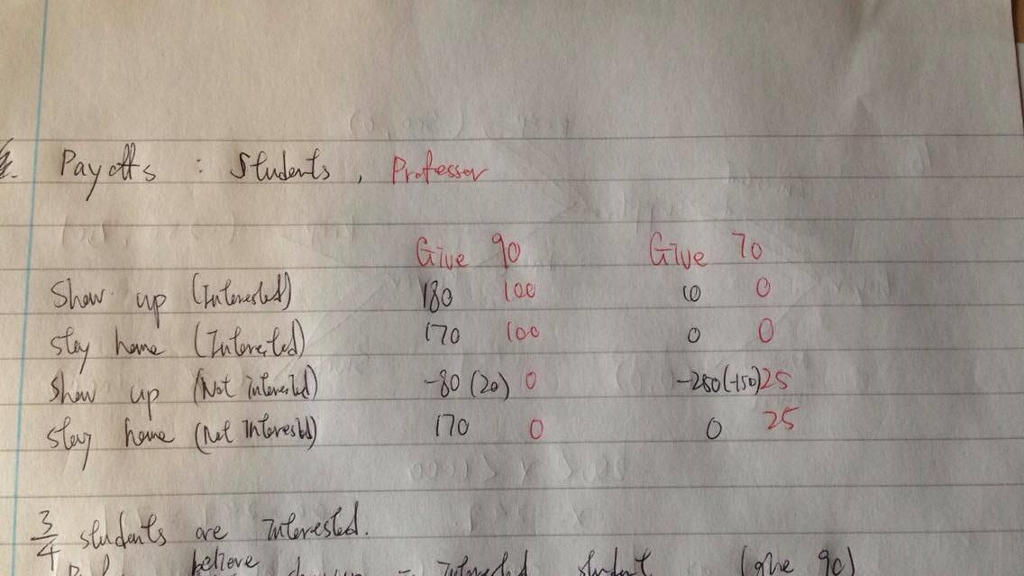 Payoffs : Students , Professor
Give 90 Give 70
Show up (Interested) 180 100 10 0
stay home (Interested) 170 100 0 0
show up (Not interested) -80 (20) 0 -250(-150) 25
stay home (Not Interested) 170 0 0 25
3/4 students are Interested.
believe = Interested student (give 90)